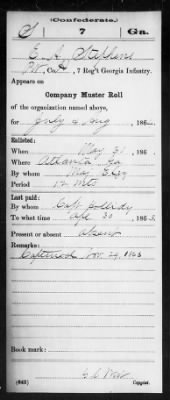 (Confederate.)
S 7 Ga.
E. A. Stephens
Co. H, 7 Reg't Georgia Infantry.
Appears on
Company Muster Roll
of the organization named above,
for July & Aug, 186
Enlisted:
When May 31, 186
Where Atlanta Ga
By whom
Period 12 Mts
Last paid:
By whom Capt
To what time Apr 30, 186
Present or absent absent
Remarks:
Captured 29, 1863
Book mark:
(642) Copyist.